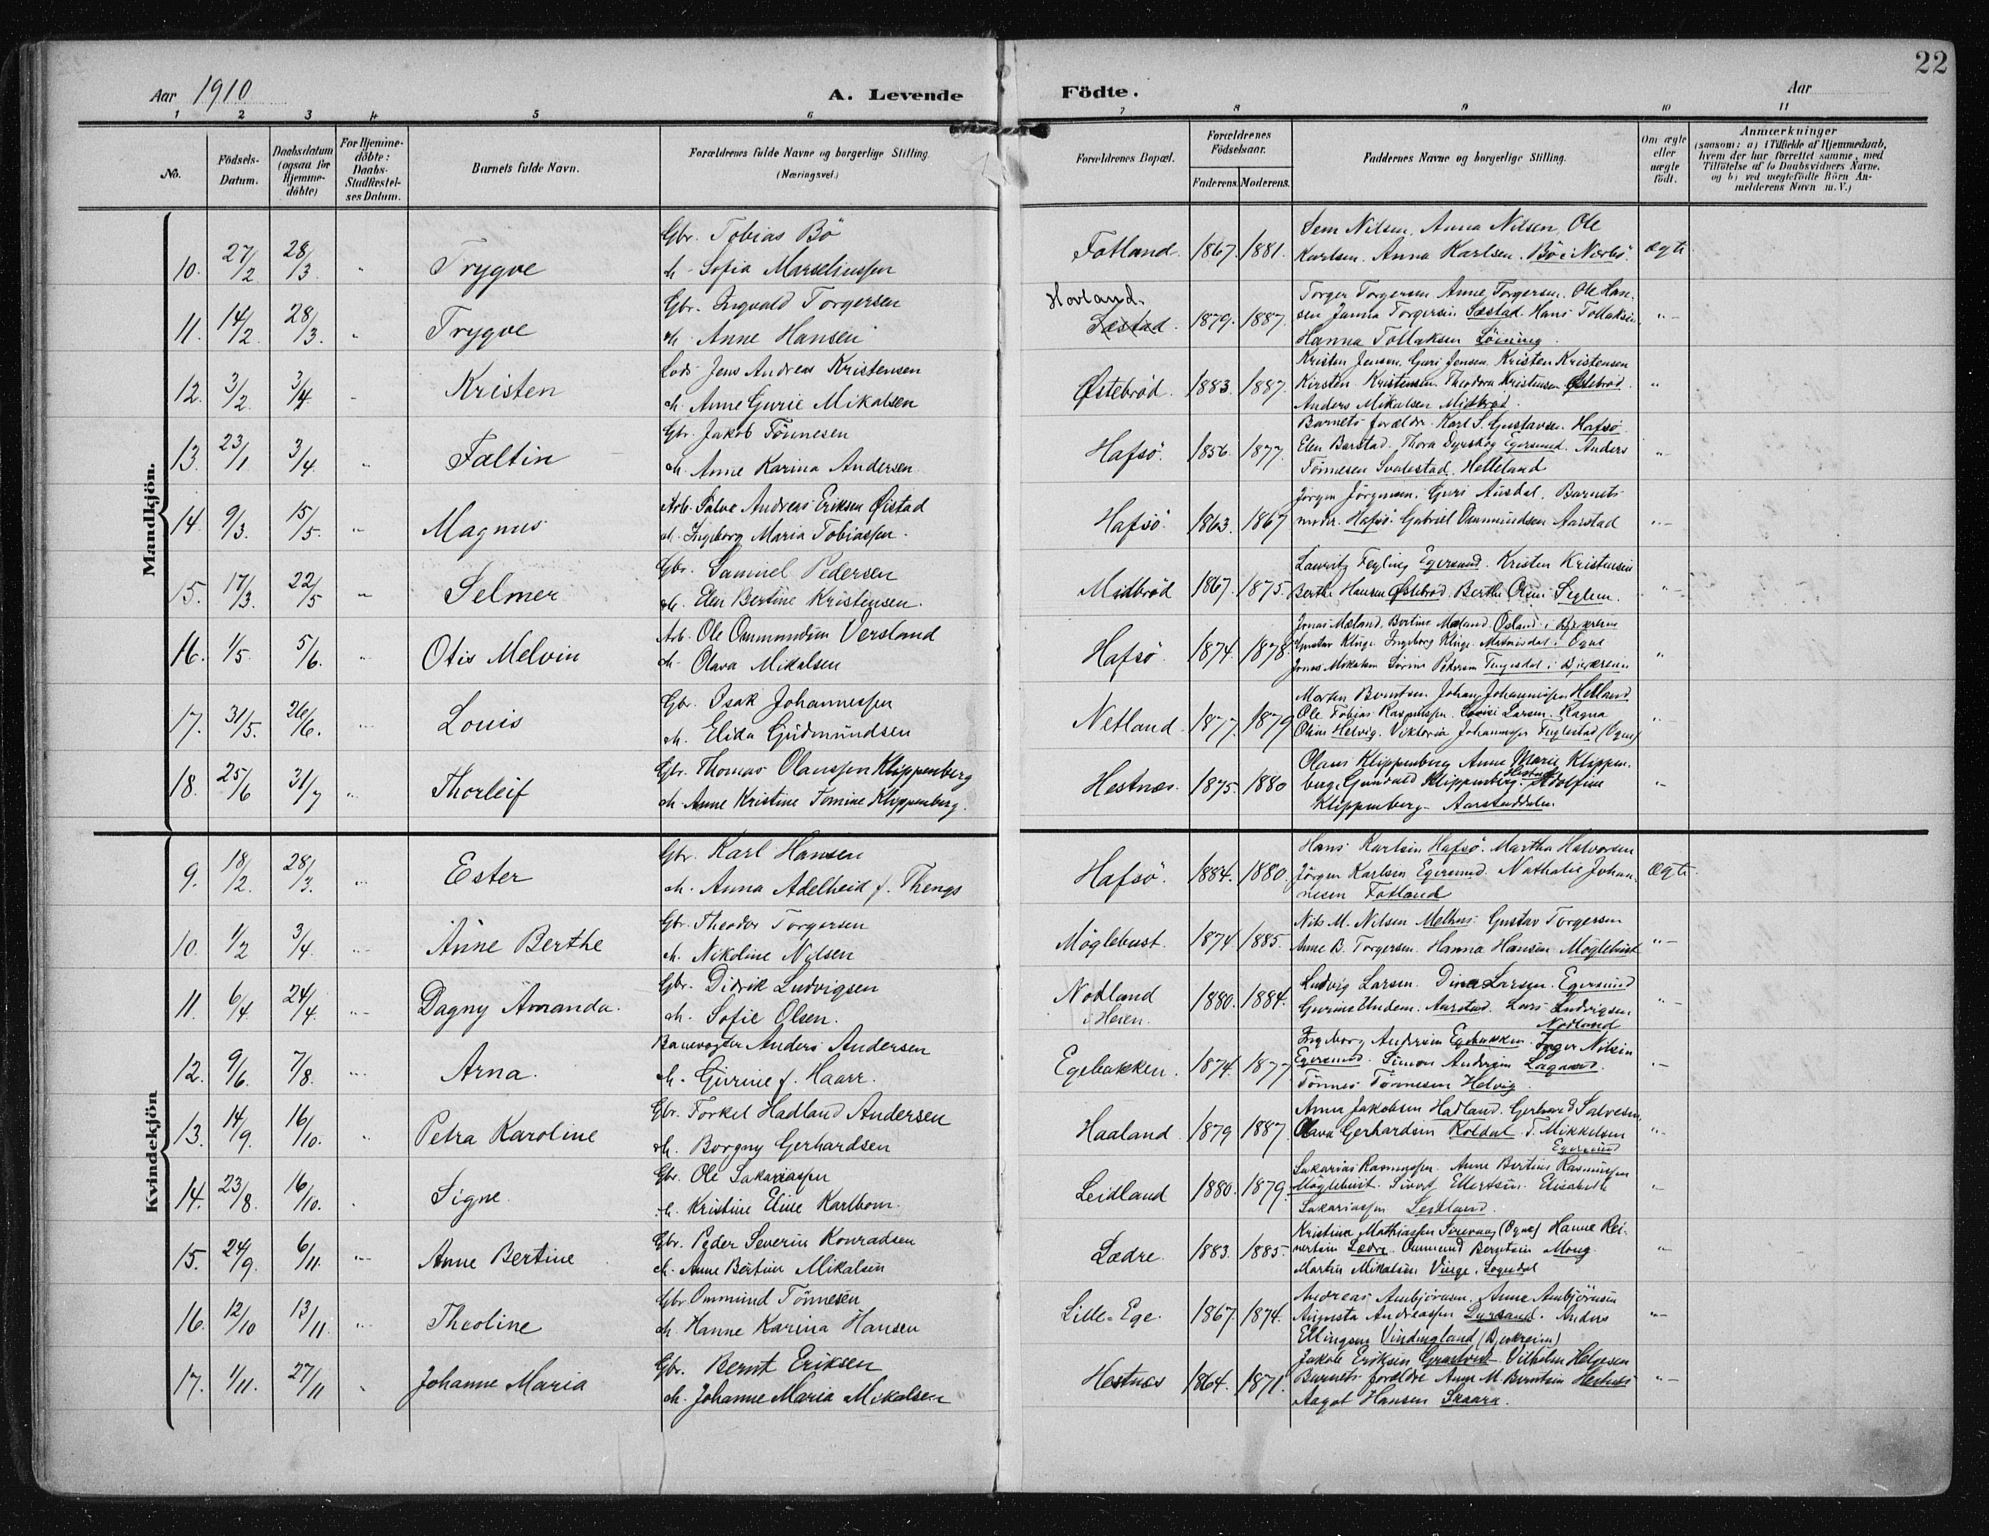 22
Aar 1910
A. Levende Födte.
Aar
1 2 3 4 5 6 7 8 9 10 11
No.
Födsels-Datum.
Daabsdatum (ogsaa for Hjemme-döbte)
For Hjemme-döbte: Daabs-Stadfæstel-ses Datum.
Barnets fulde Navn.
Forældrenes fulde Navne og borgerlige Stilling.
(Næringsvei.)
Forældrenes Bopæl.
Forældrenes Födselsaar.
Faderens. Moderens.
Faddernes Navne og borgerlige Stilling.
Om ægte eller uægte födt.
Anmærkninger
(saasom: a) i Tilfælde af Hjemmedaab,
hvem der har forrettet samme, med
Tilföielse af to Daabsvidners Navne,
og b) ved uægtefödte Börn An-
melderens Navn m. V.)
Mandkjön.
Gbr. Tobias Bö
Sem Nilsen, Anna Nilsen, Ole
10. 27/2 28/3. " Trygve M. Sofia Marseliussen Fotland. 1867. 1881. Karlsen. Anna Karlsen. Bö i Nærbö. ægte
Gbr. Ingvald Torgersen
Hovland.
Torger Torgersen Anne Torgersen. Ole Han-
11. 14/2 28/3. " Trygve M. Anne Hansen Sæstad. 1879. 1887. sen Janna Torgersen Sæstad. Hans Tollaksen "-
Hanna Tollaksen Löining.
Lods Jens Andreas Kristensen
Kristen Jensen. Guri Jensen. Kristen Kristensen
12. 3/2 3/4 " Kristen M. Anne Gurie Mikalsen Østebröd. 1883. 1887. Kirsten Kristensen. Theodora Kristensen Østebröd. "
Anders Mikalsen Midbröd.
Gbr. Jakob Tönnesen
Barnets forældre. Karl S. Gustavsen. Hafsö.
13. 23/1 3/4 " Faltin M. Anne Karina Andersen. Hafsö. 1856. 1877. Elen Barstad. Thora Dyrskog Egersund. Anders "
Tönnesen Svalestad. Helleland
Arb. Salve Andreas Eriksen Øistad
Jörgen Jörgensen. Guri Ausdal. Barnets
14. 9/3. 15/5. "- Magnus M. Ingeborg Maria Tobiassen. Hafsö. 1863. 1867 moder. Hafsö. Gabriel Ommundsen Aarstad "-
Gbr. Samuel Pedersen
Lauritz Fegling Egersund. Kristen Kristensen
15. 17/3. 22/5 " Selmer M. Elen Bertine Kristensen. Midbröd 1867. 1875. Berthe Hansen Østebröd. Berthe Olsen Seglem. "-
Arb. Ole Ommundsen Versland
Jonas Mæland. Bertine Mæland. Øsland i Bjerkreim
16. 1/5. 5/6. " Otis Melvin M. Olava Mikalsen Hafsö 1874. 1878. Gustav Klinge. Ingeborg Klinge. i Ogne "
Jonas Mikalsen Pedersen i Bjerkreim
Gbr. Isak Johannessen
Martin Berntsen. Johan Johannessen Hetland
17. 31/5. 26/6. " Louis M. Elida Gudmundsen Netland. 1877. 1879 Ole Tobias Rasmussen. Lovise Larsen. Ragna "
Olsen Helvig. Viktoria Johannessen Fuglestad (Ogne)
Gbr. Thomas Olaussen Klippenberg
Olaus Klippenberg Anne Marie Klippen-
18. 25/6 31/7 " Thorleif M. Anne Kristine Tomine Klippenberg. Hestnæs. 1875. 1880 berg. Gunvald Klippenberg. Hestnæs Adolfine "
Klippenberg- Aarstaddalen
Kvindekjön
Gbr. Karl Hansen
Hans Karlsen Hafsö. Martha Halvorsen
9. 18/2. 28/3. " Ester M. Anna Adelheid f. Thengs Hafsö. 1884. 1880. Jörgen Karlsen Egersund. Nathalie Johan- Ægte
nesen Fotland
Gbr. Theodor Torgersen
Nils M. Nilsen Melhus. Gustav Torgersen
10. 1/2 3/4. "- Anne Berthe M. Nikoline Nilsen Möglebust. 1874 1885. Anne B. Torgersen. Hanna Hansen Möglebust "-
Gbr. Didrik Ludvigsen
Ludvig Larsen. Dina Larsen. Egersund
11. 6/4 24/4. "- Dagny Amanda. M. Sofie Olsen. Nodland 1880. 1884. Gurine Undem. Aarstad. Lars Ludvigsen "-
i Heien.
Nodland
Banevogter Anders Andersen
Ingeborg Andersen Egebakken. Inger Nilsen
12. 9/6. 7/8. "- Arna. M. Gurine f. Haarr. Egebakken. 1874. 1877 Egersund. Simon Andersen Lagaard. "-
Tönnes Tönnesen Helvig.
Gbr. Torkel Hadland Andersen
Anna Jakobsen Hadland. Gerhard Salvesen
13. 14/9. 16/10. " Petra Karoline M. Borgny Gerhardsen Haaland. 1879 1887 Olava Gerhardsen Koldal. T. Mikkelsen "-
Egersund
Gbr. Ole Sakariassen
Sakarias Rasmussen. Anne Bertine Rasmussen
14. 23/8. 16/10. " Signe. M. Kristine Eline Karlbom. Leidland 1880. 1879. Möglebust. Sivert Ellertsen. Elisabeth "
Sakariassen Leidland.
Gbr. Peder Severin Konradsen
Kristina Mathiassen Sirevaag (Ogne) Hanne Rei-
15. 24/9. 6/11. "- Anne Bertine M. Anne Bertine Mikalsen Lædre. 1883. 1885- nertsen Lædre. Ommund Berntsen Moug. "
Martin Mikalsen Vinge. Sogndal
Gbr. Ommund Tönnesen
Andreas Ambjörnsen. Anne Ambjörnsen
16. 12/10 13/11. " Theoline M. Hanne Karina Hansen Lille-Ege. 1867. 1874. Augusta Andreassen Dyrsand. Anders "-
Ellingsen Vindingland (Bjerkreim)
Gbr. Bernt Eriksen
Jakob Eriksen Gaasland. Vilhelm Helgesen
17. 1/11. 27/11 " Johanne Maria M. Johanne Maria Mikalsen Hestnæs 1864. 1871. Barnets forældre Anne M. Berntsen Hestnæs "-
Aagot Hansen Skaara.